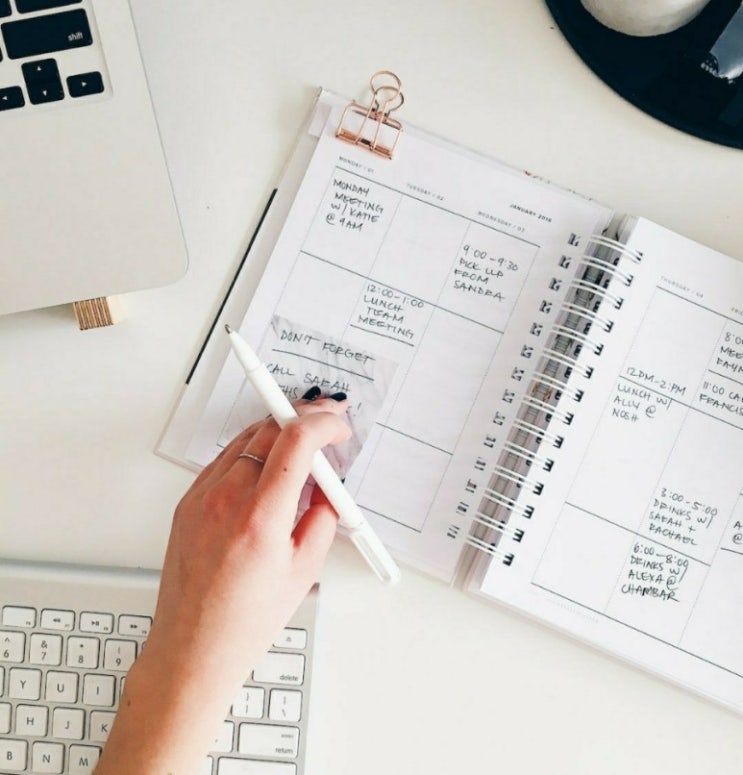 JANUARY 2018
MONDAY / 01
TUESDAY / 02
WEDNESDAY / 03
MONDAY
MEETING
W/ KATIE
@ 9AM
12:00-1:00
LUNCH
TEAM
MEETING
9:00-9:30
PICK UP
FROM
SANDRA
DON'T FORGET
CALL SARAH
THURSDAY / 04
12PM-2PM
LUNCH W/
ALLY @
NOSH
3:00-5:00
DRINKS W/
SARAH +
RACHAEL
6:00-8:00
DRINKS W/
ALEXA @
CHAMBAR
shift
6
7
8
9
Y
U
I
H
J
K
B
N
M
delete
return